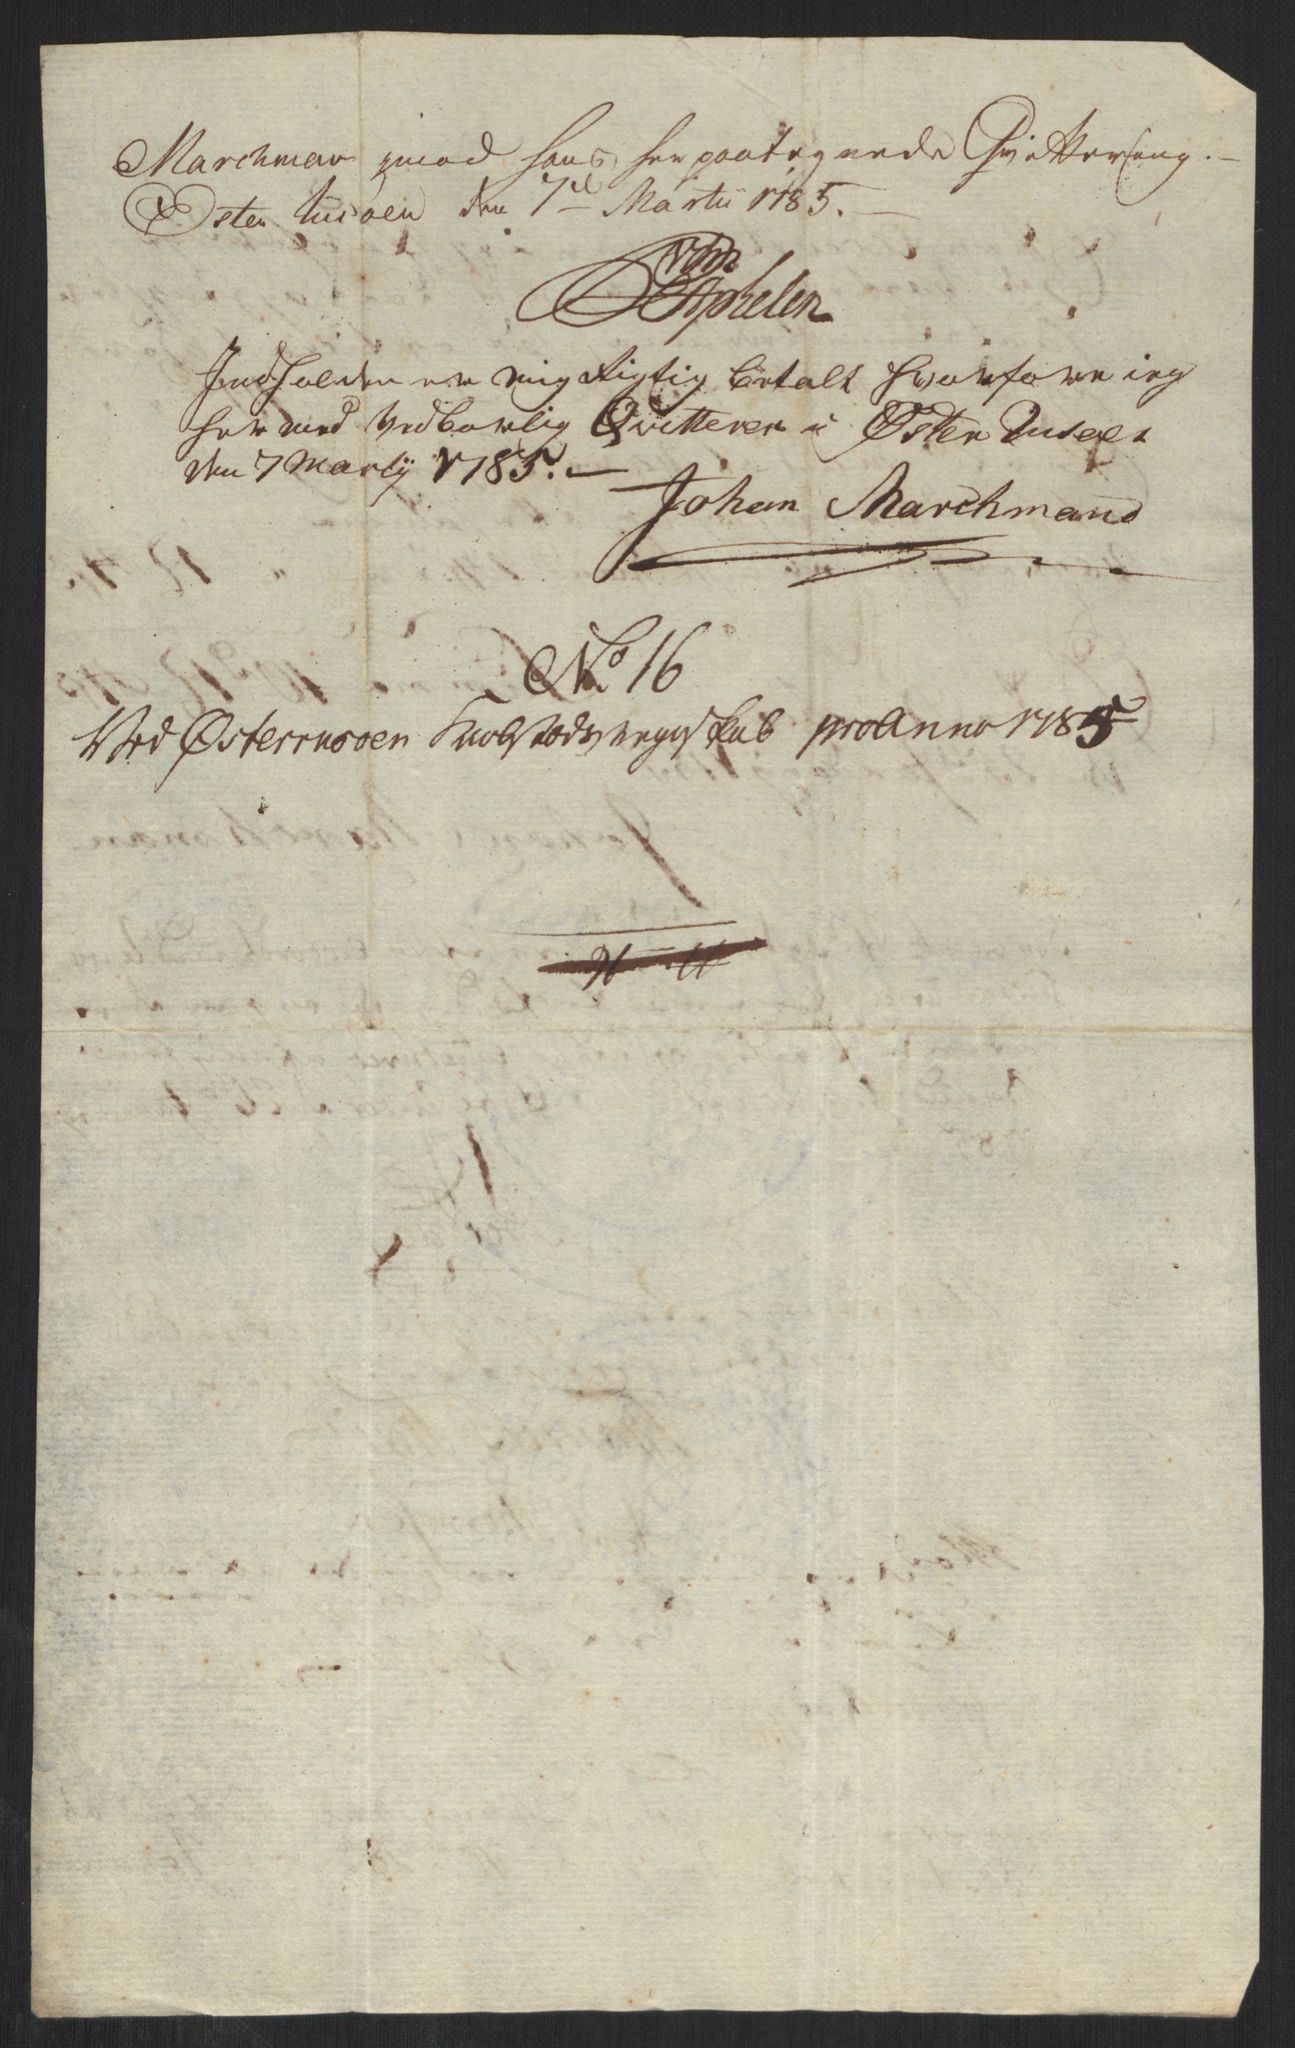 Marchman imod hans her paategnede Qvittering. —
Øster Riisøer den 7d Martii 1785. —
V: Aphelen
Indholden er mig Rigtig betalt hvorfore ieg
hermed Vedbørlig Qvitterer i Øster Riisøer
den 7 Martij 1785. —
Johan Marchmand
No. 16
Ved Østerriisøer Kiøbstæds regnskab pro Anno 1785